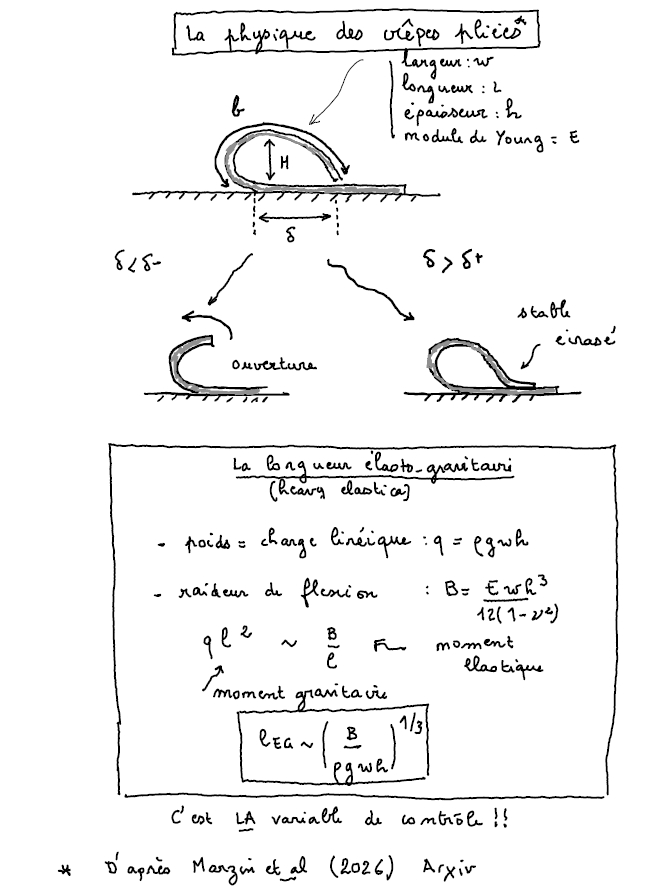 La physique des crêpes pliées*
largeur : w
longueur : L
épaisseur : h
module de Young = E
b
H
δ
δ<δ-
δ > δ+
ouverture
stable
écrasé
La longueur élasto-gravitaire
(heavy elastica)
- poids = charge linéique : q = ρgwh
- raideur de flexion : B = Ewh³/12(1-ν²)
qℓ² ~ B/ℓ
moment élastique
moment gravitaire
ℓEG ~ (B/ρgwh)^1/3
C'est LA variable de contrôle !!
* D'après Marzin et al (2026) Arxiv